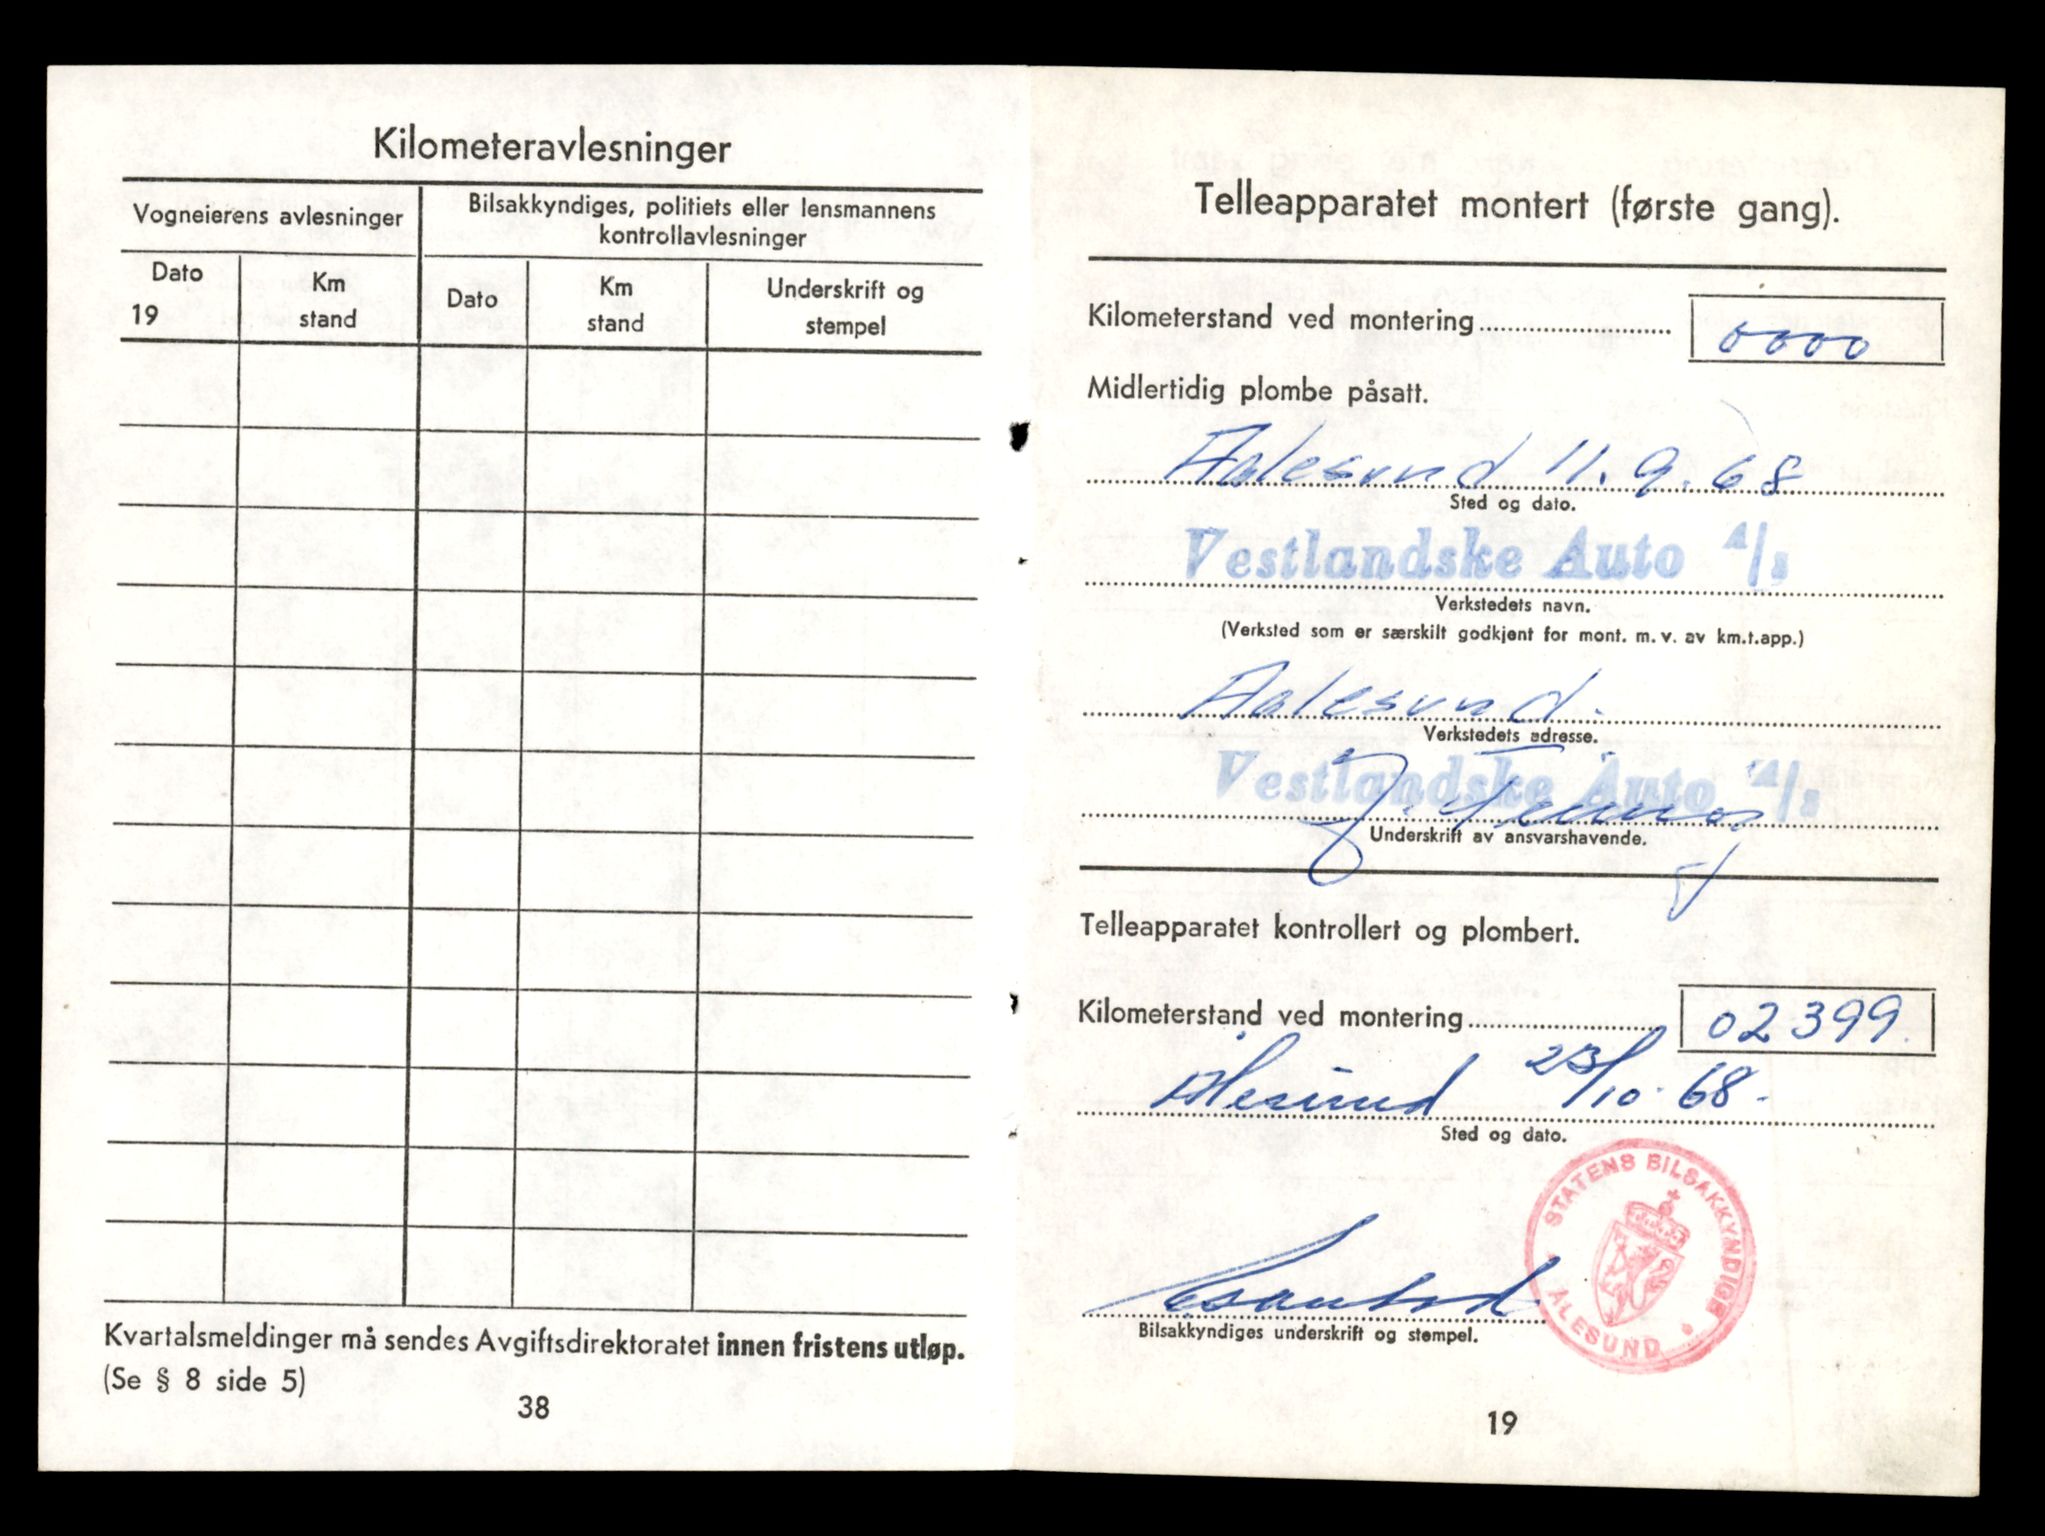 Kilometeravlesninger
Vogneierens avlesninger
Bilsakkyndiges, politiets eller lensmannens
kontrollavlesninger
Dato
19
Km
stand
Dato
Km
stand
Underskrift og
stempel
Kvartalsmeldinger må sendes Avgiftsdirektoratet innen fristens utløp.
(Se § 8 side 5)
38
Telleapparatet montert (første gang).
Kilometerstand ved montering 0000
Midlertidig plombe påsatt.
Aalesund 11.9.68
Sted og dato.
Vestlandske Auto A/s
Verkstedets navn.
(Verksted som er særskilt godkjent for mont. m. v. av km.t.app.)
Aalesund.
Verkstedets adresse.
Vestlandske Auto A/s
Underskrift av ansvarshavende.
Telleapparatet kontrollert og plombert.
Kilometerstand ved montering 02399.
Ålesund 23/10-68-
Sted og dato.
STATENS BILSAKKYNDIGE
ÅLESUND
Bilsakkyndiges underskrift og stempel.
19